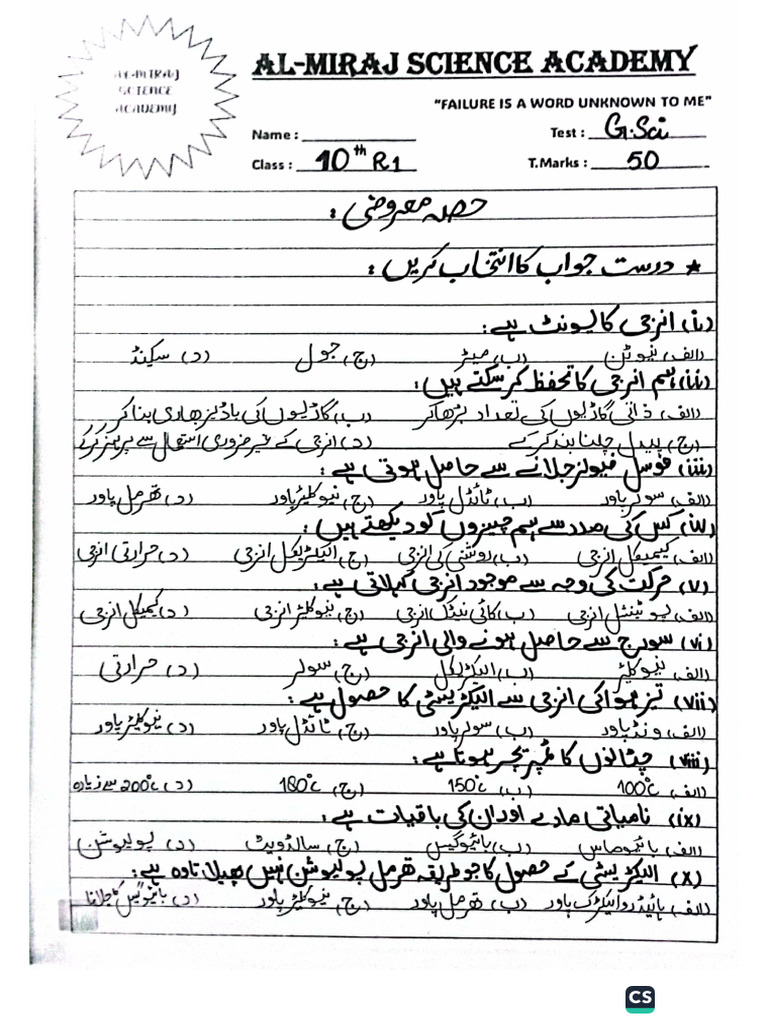 AL-MIRAJ
SCIENCE
ACADEMY
AL-MIRAJ SCIENCE ACADEMY
"FAILURE IS A WORD UNKNOWN TO ME"
Name : Test : G.Sci
Class : 10th R1 T.Marks : 50
حصہ معروضی :
★ درست جواب کا انتخاب کریں :
(i) انرجی کا یونٹ ہے :
(الف) نیوٹن (ب) میٹر (ج) جول (د) سیکنڈ
(ii) ہم انرجی کا تحفظ کر سکتے ہیں :
(الف) ذاتی گاڑیوں کی تعداد بڑھا کر (ب) گاڑیوں کی باڈیز بھاری بنا کر
(ج) پیدل چلنا بند کر کے (د) انرجی کے غیر ضروری استعمال سے پرہیز کر کے
(iii) فوسل فیولز جلانے سے حاصل ہوتی ہے :
(الف) سولر پاور (ب) ٹائڈل پاور (ج) نیوکلیئر پاور (د) تھرمل پاور
(iv) کس کی مدد سے ہم چیزوں کو دیکھتے ہیں :
(الف) کیمیکل انرجی (ب) روشنی کی انرجی (ج) الیکٹریکل انرجی (د) حرارتی انرجی
(v) حرکت کی وجہ سے موجود انرجی کہلاتی ہے :
(الف) پوٹینشل انرجی (ب) کائی نیٹک انرجی (ج) نیوکلیئر انرجی (د) کیمیکل انرجی
(vi) سورج سے حاصل ہونے والی انرجی ہے :
(الف) نیوکلیئر (ب) الیکٹریکل (ج) سولر (د) حرارتی
(vii) تیز ہوا کی انرجی سے الیکٹریسٹی کا حصول ہے :
(الف) ونڈ پاور (ب) سولر پاور (ج) ٹائڈل پاور (د) نیوکلیئر پاور
(viii) چٹانوں کا ٹمپریچر ہوتا ہے :
(الف) 100°C (ب) 150°C (ج) 180°C (د) 200°C سے زیادہ
(ix) نامیاتی مادے اور ان کی باقیات ہے :
(الف) بائیوماس (ب) بائیوگیس (ج) سالڈ ویسٹ (د) پولیوشن
(x) الیکٹریسٹی کے حصول کا جو طریقہ تھرمل پولیوشن نہیں پھیلاتا وہ ہے :
(الف) ہائیڈروالیکٹرک پاور (ب) تھرمل پاور (ج) نیوکلیئر پاور (د) بائیوگیس کا جلانا
CS